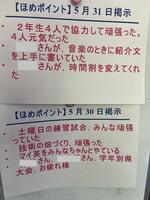 【ほめポイント】５月３１日掲示
・２年生４人で協力して頑張った。
４人元気だった
・　　さんが、音楽のときに紹介文
を上手に書いていた
・　　さんが、時間割を変えてくれ
た
【ほめポイント】５月３０日掲示
・土曜日の練習試合、みんな頑張
っていた
・技術の畑づくり、頑張った
・マイ英をみんなちゃんとやている
・　　さん、　　さん、学年別県
大会、お疲れ様